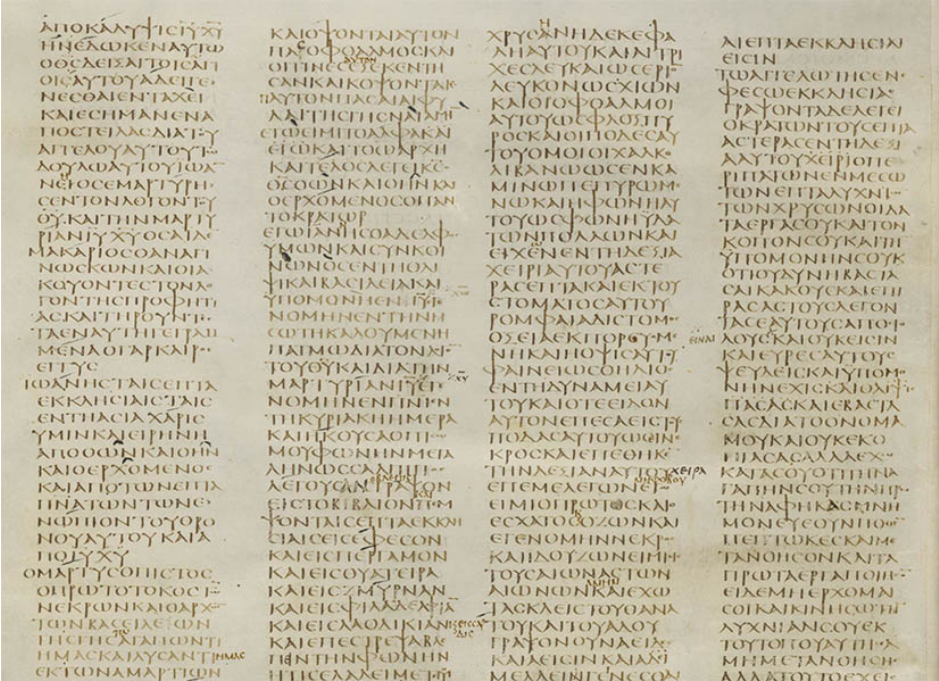 ΑΠΟΚΑΛΥΨΙϹΙΥΧΥ
ΗΝΕΔΩΚΕΝΑΥΤΩ
ΟΘϹΔΕΙΞΑΙΤΟΙϹΑΓΙ
ΟΙϹΑΥΤΟΥΑΔΕΙΓΕ
ΝΕϹΘΑΙΕΝΤΑΧΕΙ
ΚΑΙΕϹΗΜΑΝΕΝΑ
ΠΟϹΤΕΙΛΑϹΔΙΑΤΟΥ
ΑΓΓΕΛΟΥΑΥΤΟΥΤΩ
ΔΟΥΛΩΑΥΤΟΥΙΩΑ
ΝΕΙΟϹΕΜΑΡΤΥΡΗ
ϹΕΝΤΟΝΛΟΓΟΝΤΟΥ
ΘΥΚΑΙΤΗΝΜΑΡΤΥ
ΡΙΑΝΙΥΧΥΟϹΑΙΔΕ
ΜΑΚΑΡΙΟϹΟΑΝΑΓΙ
ΝΩϹΚΩΝΚΑΙΟΙΑ
ΚΟΥΟΝΤΕϹΤΟΝΛΟ
ΓΟΝΤΗϹΠΡΟΦΗΤΙ
ΑϹΚΑΙΤΗΡΟΥΝΤΕϹ
ΤΑΕΝΑΥΤΗΓΕΓΡΑΜ
ΜΕΝΑΟΓΑΡΚΑΙΡΟϹ
ΕΓΓΥϹ
ΙΩΑΝΗϹΤΑΙϹΕΠΤΑ
ΕΚΚΛΗϹΙΑΙϹΤΑΙϹ
ΕΝΤΗΑϹΙΑΧΑΡΙϹ
ΥΜΙΝΚΑΙΕΙΡΗΝΗ
ΑΠΟΟΩΝΚΑΙΟΗΝ
ΚΑΙΟΕΡΧΟΜΕΝΟϹ
ΚΑΙΑΠΟΤΩΝΕΠΤΑ
ΠΝΑΤΩΝΤΩΝΕ
ΝΩΠΙΟΝΤΟΥΘΡΟ
ΝΟΥΑΥΤΟΥΚΑΙΑ
ΠΟΙΥΧΥ
ΟΜΑΡΤΥϹΟΠΙϹΤΟϹ
ΟΠΡΩΤΟΤΟΚΟϹΤΩ
ΝΕΚΡΩΝΚΑΙΟΑΡΧΩ
ΤΩΝΒΑϹΙΛΕΩΝ
ΤΗϹΓΗϹΤΩΑΓΑΠΩΝΤΙ
ΗΜΑϹΚΑΙΛΥϹΑΝΤΙΗΜΑϹ
ΕΚΤΩΝΑΜΑΡΤΙΩΝ
ΚΑΙΟΨΟΝΤΑΙΑΥΤΟΝ
ΠΑϹΟΦΘΑΛΜΟϹΚΑΙ
ΟΙΤΙΝΕϹΕΞΕΚΕΝΤΗ
ϹΑΝΚΑΙΚΟΨΟΝΤΑΙ
ΑΥΤΟΝΠΑϹΑΙΑΙΦΥ
ΛΑΙΤΗϹΓΗϹΝΑΙΑΜΗ
ΕΓΩΕΙΜΙΤΟΑΛΦΑΚΑΙ
ΕΓΩΚΑΙΤΟΩΑΡΧΗ
ΚΑΙΤΕΛΟϹΛΕΓΕΙΚϹ
ΟΘϹΟΩΝΚΑΙΟΗΝΚΑΙ
ΟΕΡΧΟΜΕΝΟϹΟΠΑΝ
ΤΟΚΡΑΤΩΡ
ΕΓΩΙΩΑΝΗϹΟΑΔΕΛΦΟϹ
ΥΜΩΝΚΑΙϹΥΝΚΟΙ
ΝΩΝΟϹΕΝΤΗΘΛΙ
ΨΙΚΑΙΒΑϹΙΛΕΙΑΚΑΙ
ΥΠΟΜΟΝΗΕΝΙΥΓΕ
ΝΟΜΗΝΕΝΤΗΝΗ
ϹΩΤΗΚΑΛΟΥΜΕΝΗ
ΠΑΤΜΩΔΙΑΤΟΝΛΟΓΟ
ΤΟΥΘΥΚΑΙΔΙΑΤΗΝ
ΜΑΡΤΥΡΙΑΝΙΥΕΓΕ
ΝΟΜΗΝΕΝΠΝΙΕΝ
ΤΗΚΥΡΙΑΚΗΗΜΕΡΑ
ΚΑΙΗΚΟΥϹΑΟΠΙϹΩ
ΜΟΥΦΩΝΗΝΜΕΓΑ
ΛΗΝΩϹϹΑΛΠΙΓΓΟϹ
ΛΕΓΟΥϹΑΝΓΡΑΨΟΝ
ΕΙϹΤΟΒΙΒΛΙΟΝΚΑΙΠΕΜ
ΨΟΝΤΑΙϹΕΠΤΑΕΚΚΛΗ
ϹΙΑΙϹΕΙϹΕΦΕϹΟΝ
ΚΑΙΕΙϹΠΕΡΓΑΜΟΝ
ΚΑΙΕΙϹΘΥΑΤΕΙΡΑ
ΚΑΙΕΙϹΖΜΥΡΝΑΝ
ΚΑΙΕΙϹΦΙΛΑΔΕΛΦΙΑ
ΚΑΙΕΙϹΛΑΟΔΙΚΙΑΝ
ΚΑΙΕΠΕϹΤΡΕΨΑΒΛΕ
ΠΕΙΝΤΗΝΦΩΝΗΝ
ΗΤΙϹΕΛΑΛΕΙΜΕΤΕΜΟΥ
ΧΡΥϹΑΝΗΔΕΚΕΦΑ
ΛΗΑΥΤΟΥΚΑΙΑΙΤΡΙ
ΧΕϹΛΕΥΚΑΙΩϹΕΡΙΟΝ
ΛΕΥΚΟΝΩϹΧΙΩΝ
ΚΑΙΟΙΟΦΘΑΛΜΟΙ
ΑΥΤΟΥΩϹΦΛΟΞΠΥ
ΡΟϹΚΑΙΟΙΠΟΔΕϹΑΥ
ΤΟΥΟΜΟΙΟΙΧΑΛΚΟ
ΛΙΒΑΝΩΩϹΕΝΚΑ
ΜΙΝΩΠΕΠΥΡΩΜΕ
ΝΩΚΑΙΗΦΩΝΗΑΥ
ΤΟΥΩϹΦΩΝΗΫΔΑ
ΤΩΝΠΟΛΛΩΝΚΑΙ
ΕΙΧΕΝΕΝΤΗΔΕΞΙΑ
ΧΕΙΡΙΑΥΤΟΥΑϹΤΕ
ΡΑϹΕΠΤΑΚΑΙΕΚΤΟΥ
ϹΤΟΜΑΤΟϹΑΥΤΟΥ
ΡΟΜΦΑΙΑΔΙϹΤΟΜΟϹ
ΟΞΕΙΑΕΚΠΟΡΕΥΟΜΕ
ΝΗΚΑΙΗΟΨΙϹΑΥΤΟΥ
ΦΑΙΝΕΙΩϹΟΗΛΙΟϹ
ΕΝΤΗΔΥΝΑΜΕΙΑΥ
ΤΟΥΚΑΙΟΤΕΕΙΔΟΝ
ΑΥΤΟΝΕΠΕϹΑΕΙϹΤΟΥϹ
ΠΟΔΑϹΑΥΤΟΥΩϹΕΙΝΕ
ΚΡΟϹΚΑΙΕΠΕΘΗΚΕΝ
ΤΗΝΔΕΞΙΑΝΑΥΤΟΥΧΕΙΡΑ
ΕΠΕΜΕΛΕΓΩΝ
ΕΓΩΕΙΜΙΟΠΡΩΤΟϹΚΑΙΟ
ΕϹΧΑΤΟϹΟΖΩΝΚΑΙ
ΕΓΕΝΟΜΗΝΝΕΚΡΟϹ
ΚΑΙΙΔΟΥΖΩΝΕΙΜΙΕΙϹ
ΤΟΥϹΑΙΩΝΑϹΤΩΝ
ΑΙΩΝΩΝΚΑΙΕΧΩ
ΤΑϹΚΛΕΙϹΤΟΥΘΑΝΑ
ΤΟΥΚΑΙΤΟΥΑΔΟΥ
ΓΡΑΨΟΝΟΥΝΑΕΙΔΕϹ
ΚΑΙΑΕΙϹΙΝΚΑΙΑΔΕΙ
ΜΕΛΛΕΙΝΓΕΝΕϹΘΑΙ
ΑΙΕΠΤΑΕΚΚΛΗϹΙΑΙ
ΕΙϹΙΝ
ΤΩΑΓΓΕΛΩΤΗϹΕΝΕ
ΦΕϹΩΕΚΚΛΗϹΙΑϹ
ΓΡΑΨΟΝΤΑΔΕΛΕΓΕΙ
ΟΚΡΑΤΩΝΤΟΥϹΕΠΤΑ
ΑϹΤΕΡΑϹΕΝΤΗΔΕΞΙ
ΑΑΥΤΟΥΧΕΙΡΙΟΠΕ
ΡΙΠΑΤΩΝΕΝΜΕϹΩ
ΤΩΝΕΠΤΑΛΥΧΝΙ
ΤΩΝΧΡΥϹΩΝΟΙΔΑ
ΤΑΕΡΓΑϹΟΥΚΑΙΤΟΝ
ΚΟΠΟΝϹΟΥΚΑΙΤΗ
ΥΠΟΜΟΝΗΝϹΟΥΚ
ΟΤΙΟΥΔΥΝΗΒΑϹΤΑ
ϹΑΙΚΑΚΟΥϹΚΑΙΕΠΙ
ΡΑϹΑϹΤΟΥϹΛΕΓΟΝ
ΤΑϹΕΑΥΤΟΥϹΑΠΟϹΤΟ
ΛΟΥϹΚΑΙΟΥΚΕΙϹΙΝ
ΚΑΙΕΥΡΕϹΑΥΤΟΥϹ
ΨΕΥΔΕΙϹΚΑΙΥΠΟΜΟ
ΝΗΝΕΧΙϹΚΑΙΘΛΙΨΙϹ
ΠΑϹΑϹΚΑΙΕΒΑϹΤΑ
ϹΑϹΔΙΑΤΟΟΝΟΜΑ
ΜΟΥΚΑΙΟΥΚΕΚΟ
ΠΙΑϹΑϹΑΛΛΑΕΧΩ
ΚΑΤΑϹΟΥΟΤΙΤΗΝΑ
ΓΑΠΗΝϹΟΥΤΗΝΠΡΩ
ΤΗΝΑΦΗΚΑϹΜΝΗ
ΜΟΝΕΥΕΟΥΝΠΟΘΕ
ΠΕΠΤΩΚΕϹΚΑΙΜΕ
ΤΑΝΟΗϹΟΝΚΑΙΤΑ
ΠΡΩΤΑΕΡΓΑΠΟΙΗϹΟ
ΕΙΔΕΜΗΕΡΧΟΜΑΙ
ϹΟΙΚΑΙΚΙΝΗϹΩΤΗ
ΛΥΧΝΙΑΝϹΟΥΕΚ
ΤΟΥΤΟΠΟΥΑΥΤΗϹΕΑ
ΜΗΜΕΤΑΝΟΗϹΗϹ
ΑΛΛΑΤΟΥΤΟΕΧΕΙϹ